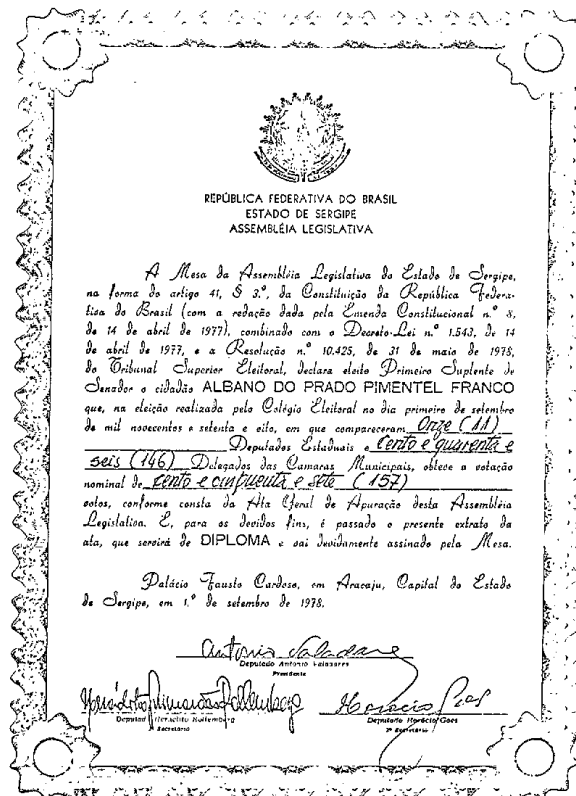 REPÚBLICA FEDERATIVA DO BRASIL
ESTADO DE SERGIPE
ASSEMBLÉIA LEGISLATIVA
A Mesa da Assembléia Legislativa do Estado de Sergipe,
na forma do artigo 41, § 3.º, da Constituição da República Federa-
tiva do Brasil (com a redação dada pela Emenda Constitucional n.º 8,
de 14 de abril de 1977), combinado com o Decreto-Lei n.º 1.543, de 14
de abril de 1977, e a Resolução n.º 10.425, de 31 de maio de 1978,
do Tribunal Superior Eleitoral, declara eleito Primeiro Suplente de
Senador o cidadão ALBANO DO PRADO PIMENTEL FRANCO
que, na eleição realizada pelo Colégio Eleitoral no dia primeiro de setembro
de mil novecentos e setenta e oito, em que compareceram Onze (11)
Deputados Estaduais e Cento e quarenta e
seis (146) Delegados das Camaras Municipais, obteve a votação
nominal de cento e cinquenta e sete (157)
votos, conforme consta da Ata Geral de Apuração desta Assembléia
Legislativa. E, para os devidos fins, é passado o presente extrato da
ata, que servirá de DIPLOMA e vai devidamente assinado pela Mesa.
Palácio Fausto Cardoso, em Aracaju, Capital do Estado
de Sergipe, em 1.º de setembro de 1978.
Antonio Valadares
Deputado Antonio Valadares
Presidente
Deputado Heraclito Rollemberg
Secretário
Horacio Goes
Deputado Horácio Goes
2º Secretário